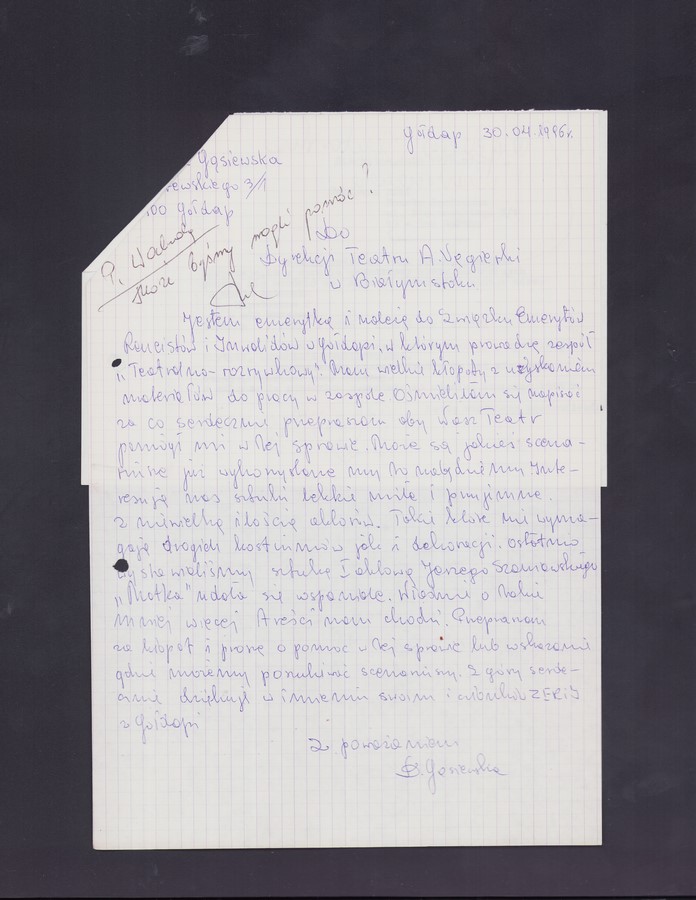 Gołdap 30.04.1996r.
. Gąsiewska
rewskiego 3/1
500 Gołdap
P. Walendy
może byśmy mogli pomóc?
Do
Dyrekcji Teatru A. Węgierki
w Białymstoku
Jestem emerytką i należę do Związku Emerytów
Rencistów i Inwalidów w Gołdapi, w którym prowadzę zespół
„Teatralno-rozrywkowy". Mam wielkie kłopoty z uzyskaniem
materiałów do pracy w zespole Ośmieliłam się napisać
za co serdecznie przepraszam aby Wasz Teatr
pomógł mi w tej sprawie. Może są jakieś scena-
riusze już wykorzystane my to nabędziemy Inte-
resują nas sztuki lekkie miłe i przyjemne
z niewielką ilością aktorów. Takie które nie wyma-
gają drogich kostiumów jak i dekoracji. Ostatnio
wystawialiśmy sztukę 1 aktową Jerzego Szaniawskiego
„Matka" udała się wspaniale. Właśnie o takie
mniej więcej treści nam chodzi. Przepraszam
za kłopot i proszę o pomoc w tej sprawie lub wskazanie
gdzie możemy poszukiwać scenariuszy. Z góry serde-
cznie dziękuję w imieniu swoim i członków ZERiJ
w Gołdapi
Z poważaniem
Gąsiewska